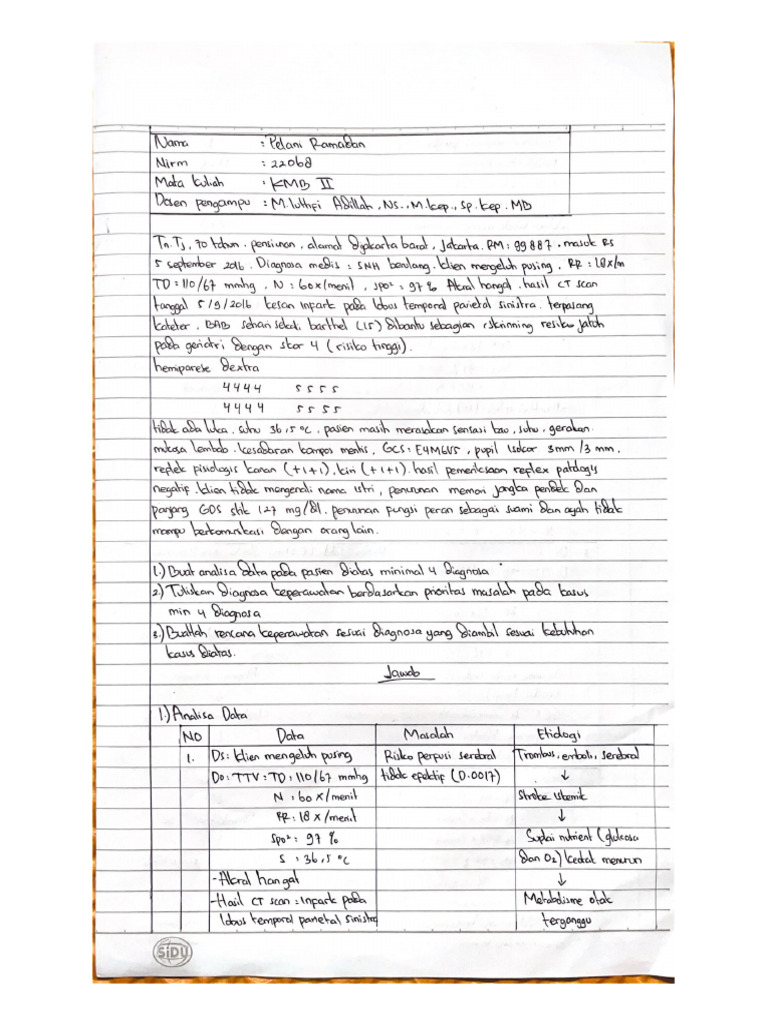 Nama : Pelani Ramadan
Nirm : 22068
Mata kuliah : KMB II
Dosen pengampu : M. luthfi Adillah, Ns., M.kep., Sp.kep.MB
Tn. Tj, 70 tahun. pensiunan, alamat djakarta barat, Jakarta. RM: 99887, masuk RS
5 september 2016. Diagnosa medis: SNH berulang. klien mengeluh pusing, RR: 18x/m
TD: 110/67 mmhg, N: 60x/menit, spo²: 97% Akral hangat. hasil CT scan
tanggal 5/9/2016 kesan inpark pada lobus temporal parietal sinistra, terpasang
kateter, BAB sehari sekali, barthel (15) dibantu sebagian, skrinning resiko jatuh
pada geriatri dengan skor 4 (risiko tinggi).
hemiparese dextra
4444 5555
4444 5555
tidak ada luka, suhu 36,5°C, pasien masih merasakan sensasi bau, suhu, gerakan.
mukosa lembab. kesadaran kompos mentis, GCS: E4M6V5, pupil isokor 3mm/3 mm.
reflek pisiologis kanan (+1+1), kiri (+1+1). hasil pemeriksaan reflex patologis
negatif. klien tidak mengenali nama istri, penurunan memori jangka pendek dan
panjang GDS stik 127 mg/dl. penurunan fungsi peran sebagai suami dan ayah tidak
mampu berkomunikasi dengan orang lain.
1.) Buat analisa data pada pasien diatas minimal 4 diagnosa
2.) Tuliskan diagnosa keperawatan berdasarkan prioritas masalah pada kasus
min 4 diagnosa
3.) Buatlah rencana keperawatan sesuai diagnosa yang diambil sesuai kebutuhan
kasus diatas.
Jawab
1.) Analisa Data
NO Data Masalah Etiologi
1. Ds: klien mengeluh pusing Risiko perfusi serebral Trombus, emboli, serebral
Do: TTV: TD: 110/67 mmhg tidak efektif (D.0017) ↓
N : 60 x/menit Stroke iskemik
RR: 18 x/menit ↓
Spo²: 97 % Suplai nutrient (glukosa
S : 36,5 °C dan O2) kedkal menurun
- Akral hangat ↓
- Hasil CT scan: Inpark pada Metabolisme otak
lobus temporal parietal sinistra terganggu
SiDU